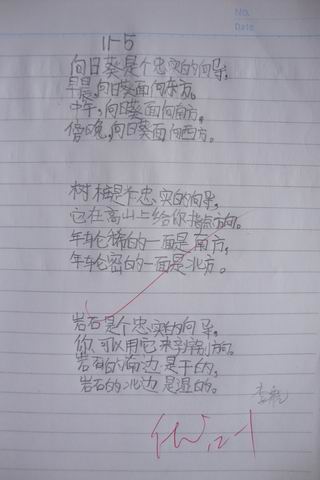 No.
Date
11-5
向日葵是个忠实的向导,
早晨,向日葵面向东方。
中午,向日葵面向南方,
傍晚,向日葵面向西方。
树桩是个忠实的向导,
它在高山上给你指点方向。
年轮稀的一面是南方,
年轮密的一面是北方。
岩石是个忠实的向导,
你可以用它来辨别方向。
岩石的南边是干的,
岩石的北边是湿的。